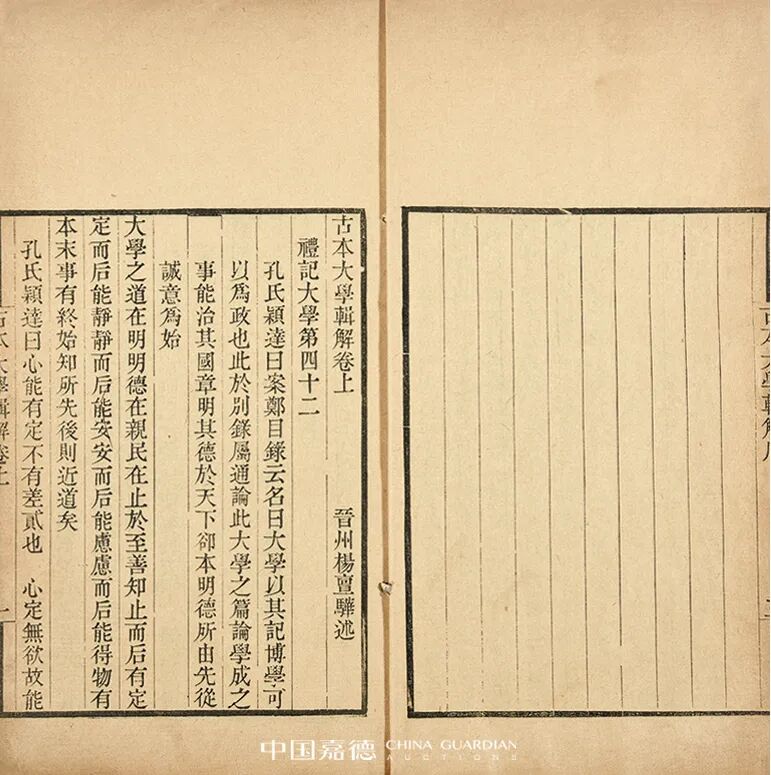 古本大學輯解卷上
晉州楊亶驊述
禮記大學第四十二
孔氏穎達曰案鄭目錄云名曰大學以其記博學可
以爲政也此於別錄屬通論此大學之篇論學成之
事能治其國章明其德於天下卻本明德所由先從
誠意爲始
大學之道在明明德在親民在止於至善知止而后有定
定而后能靜靜而后能安安而后能慮慮而后能得物有
本末事有終始知所先後則近道矣
孔氏穎達曰心能有定不有差貳也　心定無欲故能
古本大學輯解卷上
一
古本大學輯解
中国嘉德 CHINA GUARDIAN
AUCTIONS